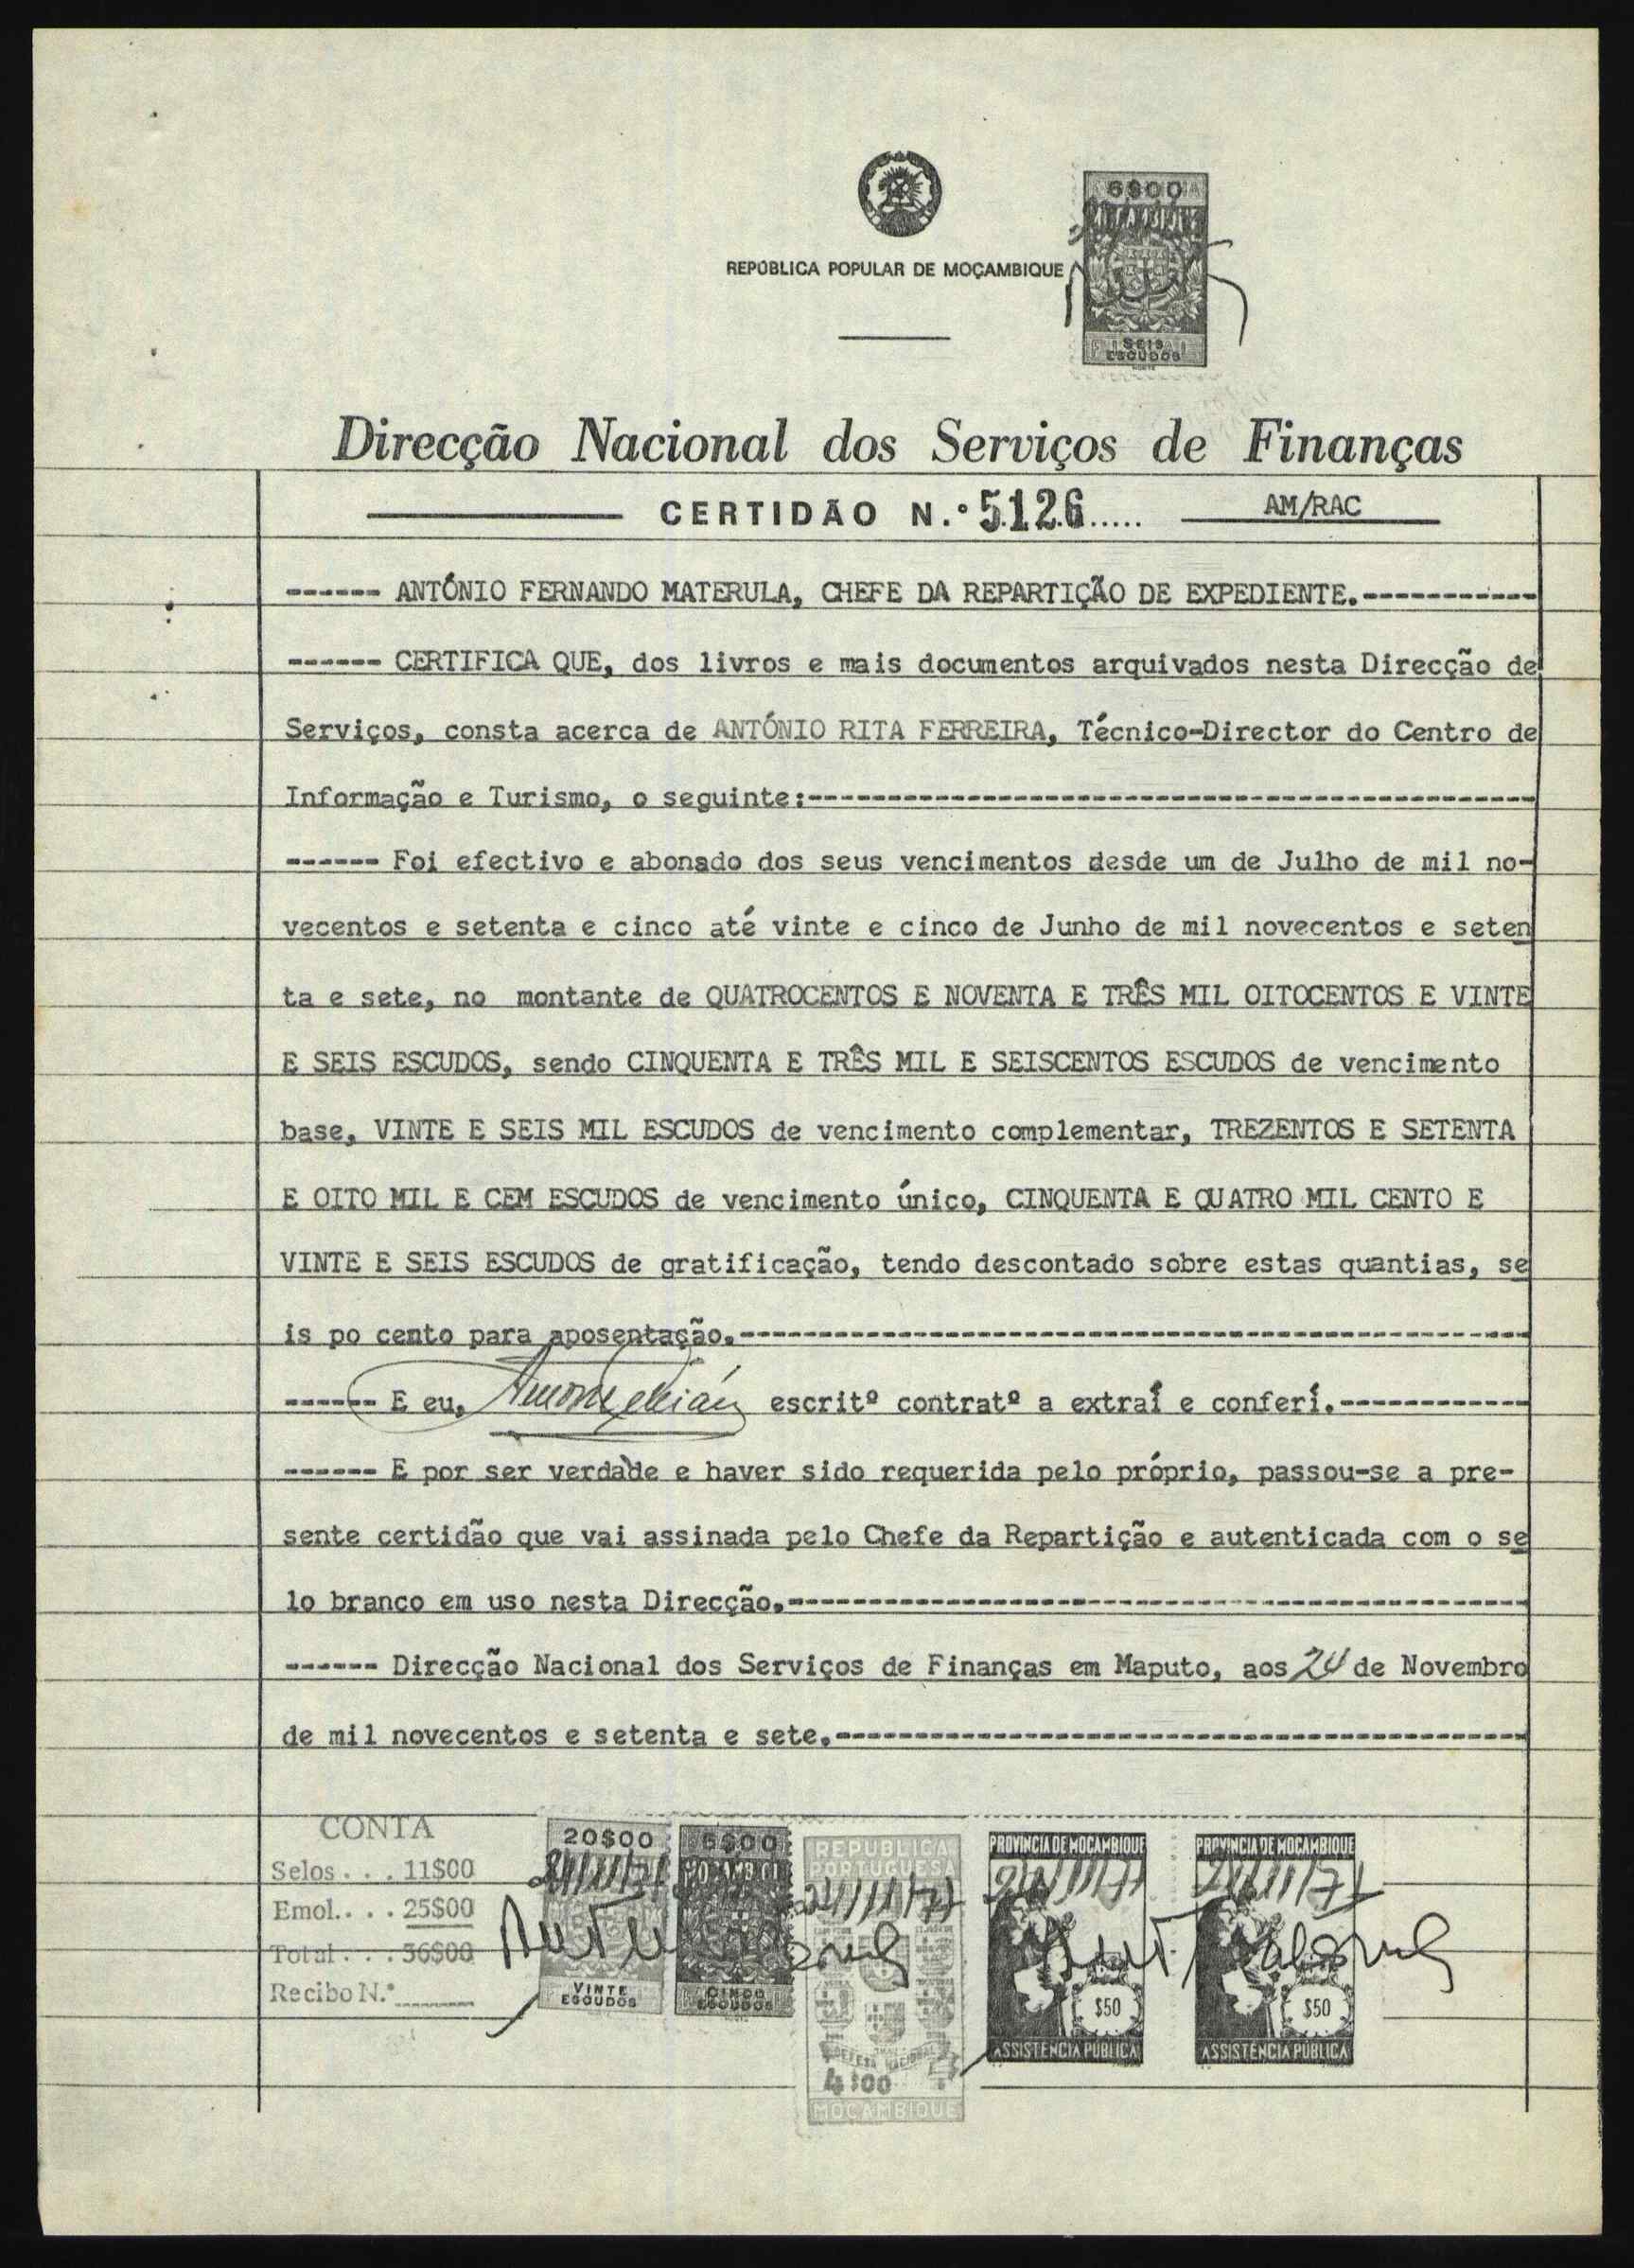 REPÚBLICA POPULAR DE MOÇAMBIQUE
6$00
MOÇAMBIQUE
SEIS
ESCUDOS
Direcção Nacional dos Serviços de Finanças
CERTIDÃO N.º 5126..... AM/RAC
------ ANTÓNIO FERNANDO MATERULA, CHEFE DA REPARTIÇÃO DE EXPEDIENTE.-----------
------ CERTIFICA QUE, dos livros e mais documentos arquivados nesta Direcção de
Serviços, consta acerca de ANTÓNIO RITA FERREIRA, Técnico-Director do Centro de
Informação e Turismo, o seguinte:----------------------------------------------
------ Foi efectivo e abonado dos seus vencimentos desde um de Julho de mil no-
vecentos e setenta e cinco até vinte e cinco de Junho de mil novecentos e seten
ta e sete, no montante de QUATROCENTOS E NOVENTA E TRÊS MIL OITOCENTOS E VINTE
E SEIS ESCUDOS, sendo CINQUENTA E TRÊS MIL E SEISCENTOS ESCUDOS de vencimento
base, VINTE E SEIS MIL ESCUDOS de vencimento complementar, TREZENTOS E SETENTA
E OITO MIL E CEM ESCUDOS de vencimento único, CINQUENTA E QUATRO MIL CENTO E
VINTE E SEIS ESCUDOS de gratificação, tendo descontado sobre estas quantias, se
is po cento para aposentação.--------------------------------------------------
------ E eu, escritº contratº a extraí e conferí.------------
------ E por ser verdade e haver sido requerida pelo próprio, passou-se a pre-
sente certidão que vai assinada pelo Chefe da Repartição e autenticada com o se
lo branco em uso nesta Direcção.-----------------------------------------------
------ Direcção Nacional dos Serviços de Finanças em Maputo, aos 24 de Novembro
de mil novecentos e setenta e sete.--------------------------------------------
CONTA
Selos . . . 11$00
Emol. . . . 25$00
Total . . . 36$00
Recibo N.º
20$00
24/11/77
VINTE
ESCUDOS
5$00
MOÇAMBIQUE
CINCO
ESCUDOS
REPUBLICA
PORTUGUESA
24/11/77
DEFESA NACIONAL
4$00
MOÇAMBIQUE
PROVINCIA DE MOÇAMBIQUE
24/11/77
$50
ASSISTÊNCIA PÚBLICA
PROVINCIA DE MOÇAMBIQUE
24/11/77
$50
ASSISTÊNCIA PÚBLICA